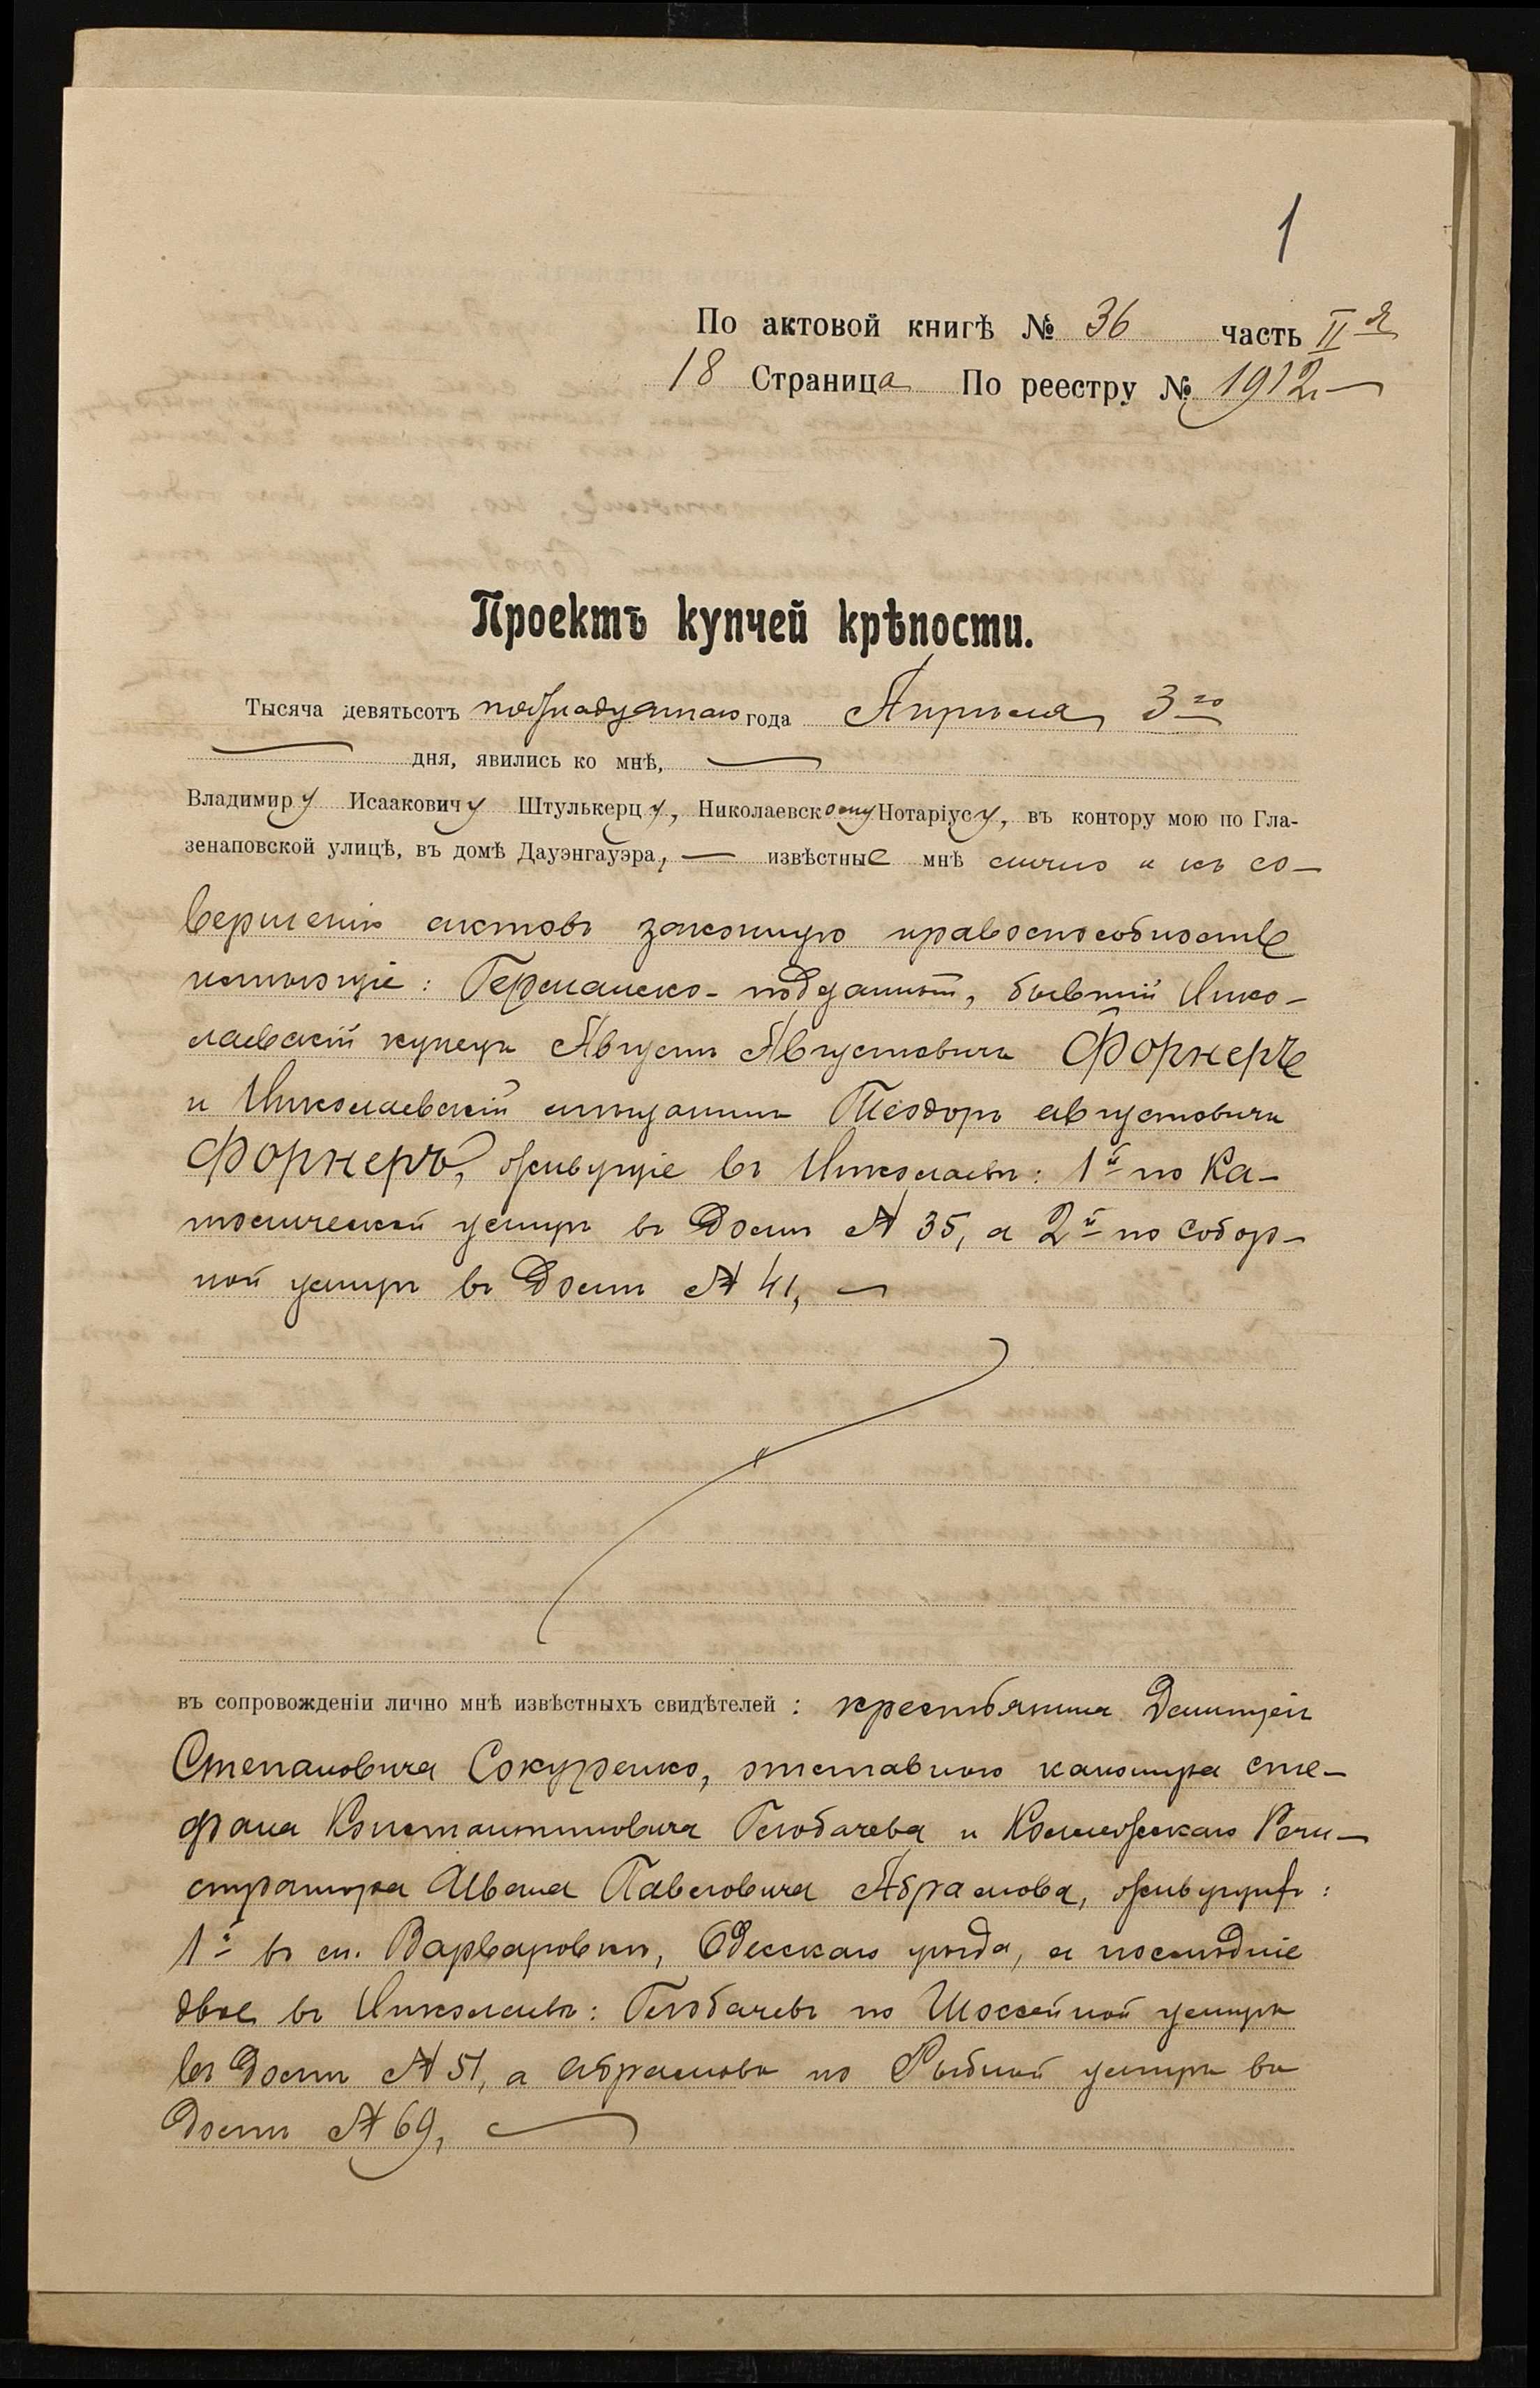 1
По актовой книгѣ № 36 часть II я
18 Страница По реестру № 1912
Проектъ купчей крѣпости.
Тысяча девятьсотъ пятнадцатаго года Апрѣля 3 го
дня, явились ко мнѣ,
Владимиру Исааковичу Штулькерцу, Николаевскому Нотаріусу, въ контору мою по Гла-
зенаповской улицѣ, въ домѣ Дауэнгауэра, извѣстные мнѣ лично и къ со-
вершенію актовъ законную правоспособность
имѣющіе: Германско-подданный, бывшій Нико-
лаевскій купецъ Августъ Августовичъ Форнеръ
и Николаевскій мѣщанинъ Теодоръ Августовичъ
Форнеръ, живущіе въ Николаевѣ: 1й по Ка-
толической улицѣ въ домѣ № 35, а 2й по Собор-
ной улицѣ въ домѣ № 41,
въ сопровожденіи лично мнѣ извѣстныхъ свидѣтелей: крестьянина
Степановича Сокуренко, отставного Сте-
фана Константиновича Глобачева и Коллежскаго Реги-
стратора Ивана Павловича Абрамова, живущихъ:
1й въ с. Варваровкѣ, Одесскаго уѣзда, а послѣдніе
двое въ Николаевѣ: Глобачевъ по Шоссейной улицѣ
въ домѣ № 51, а Абрамовъ по Рыбной улицѣ въ
домѣ № 69,